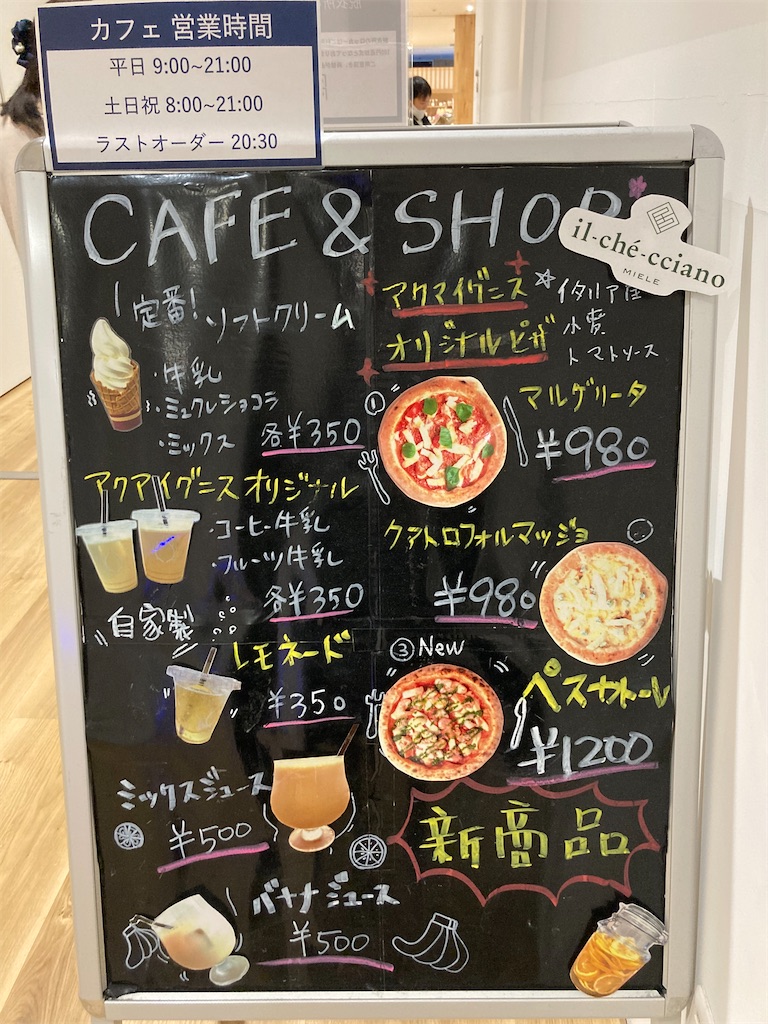 カフェ 営業時間
平日 9:00~21:00
土日祝 8:00~21:00
ラストオーダー 20:30
CAFE & SHOP
il-ché-cciano
MIELE
定番! ソフトクリーム
・牛乳
・ミュクレショコラ
・ミックス 各¥350
アクアイグニスオリジナル
・コーヒー牛乳
・フルーツ牛乳
各¥350
自家製
レモネード
¥350
ミックスジュース
¥500
バナナジュース
¥500
アクアイグニス
オリジナルピザ
☆イタリア産
小麦
トマトソース
① マルゲリータ
¥980
クアトロフォルマッジョ
¥980
③New
ペスカトーレ
¥1200
新商品